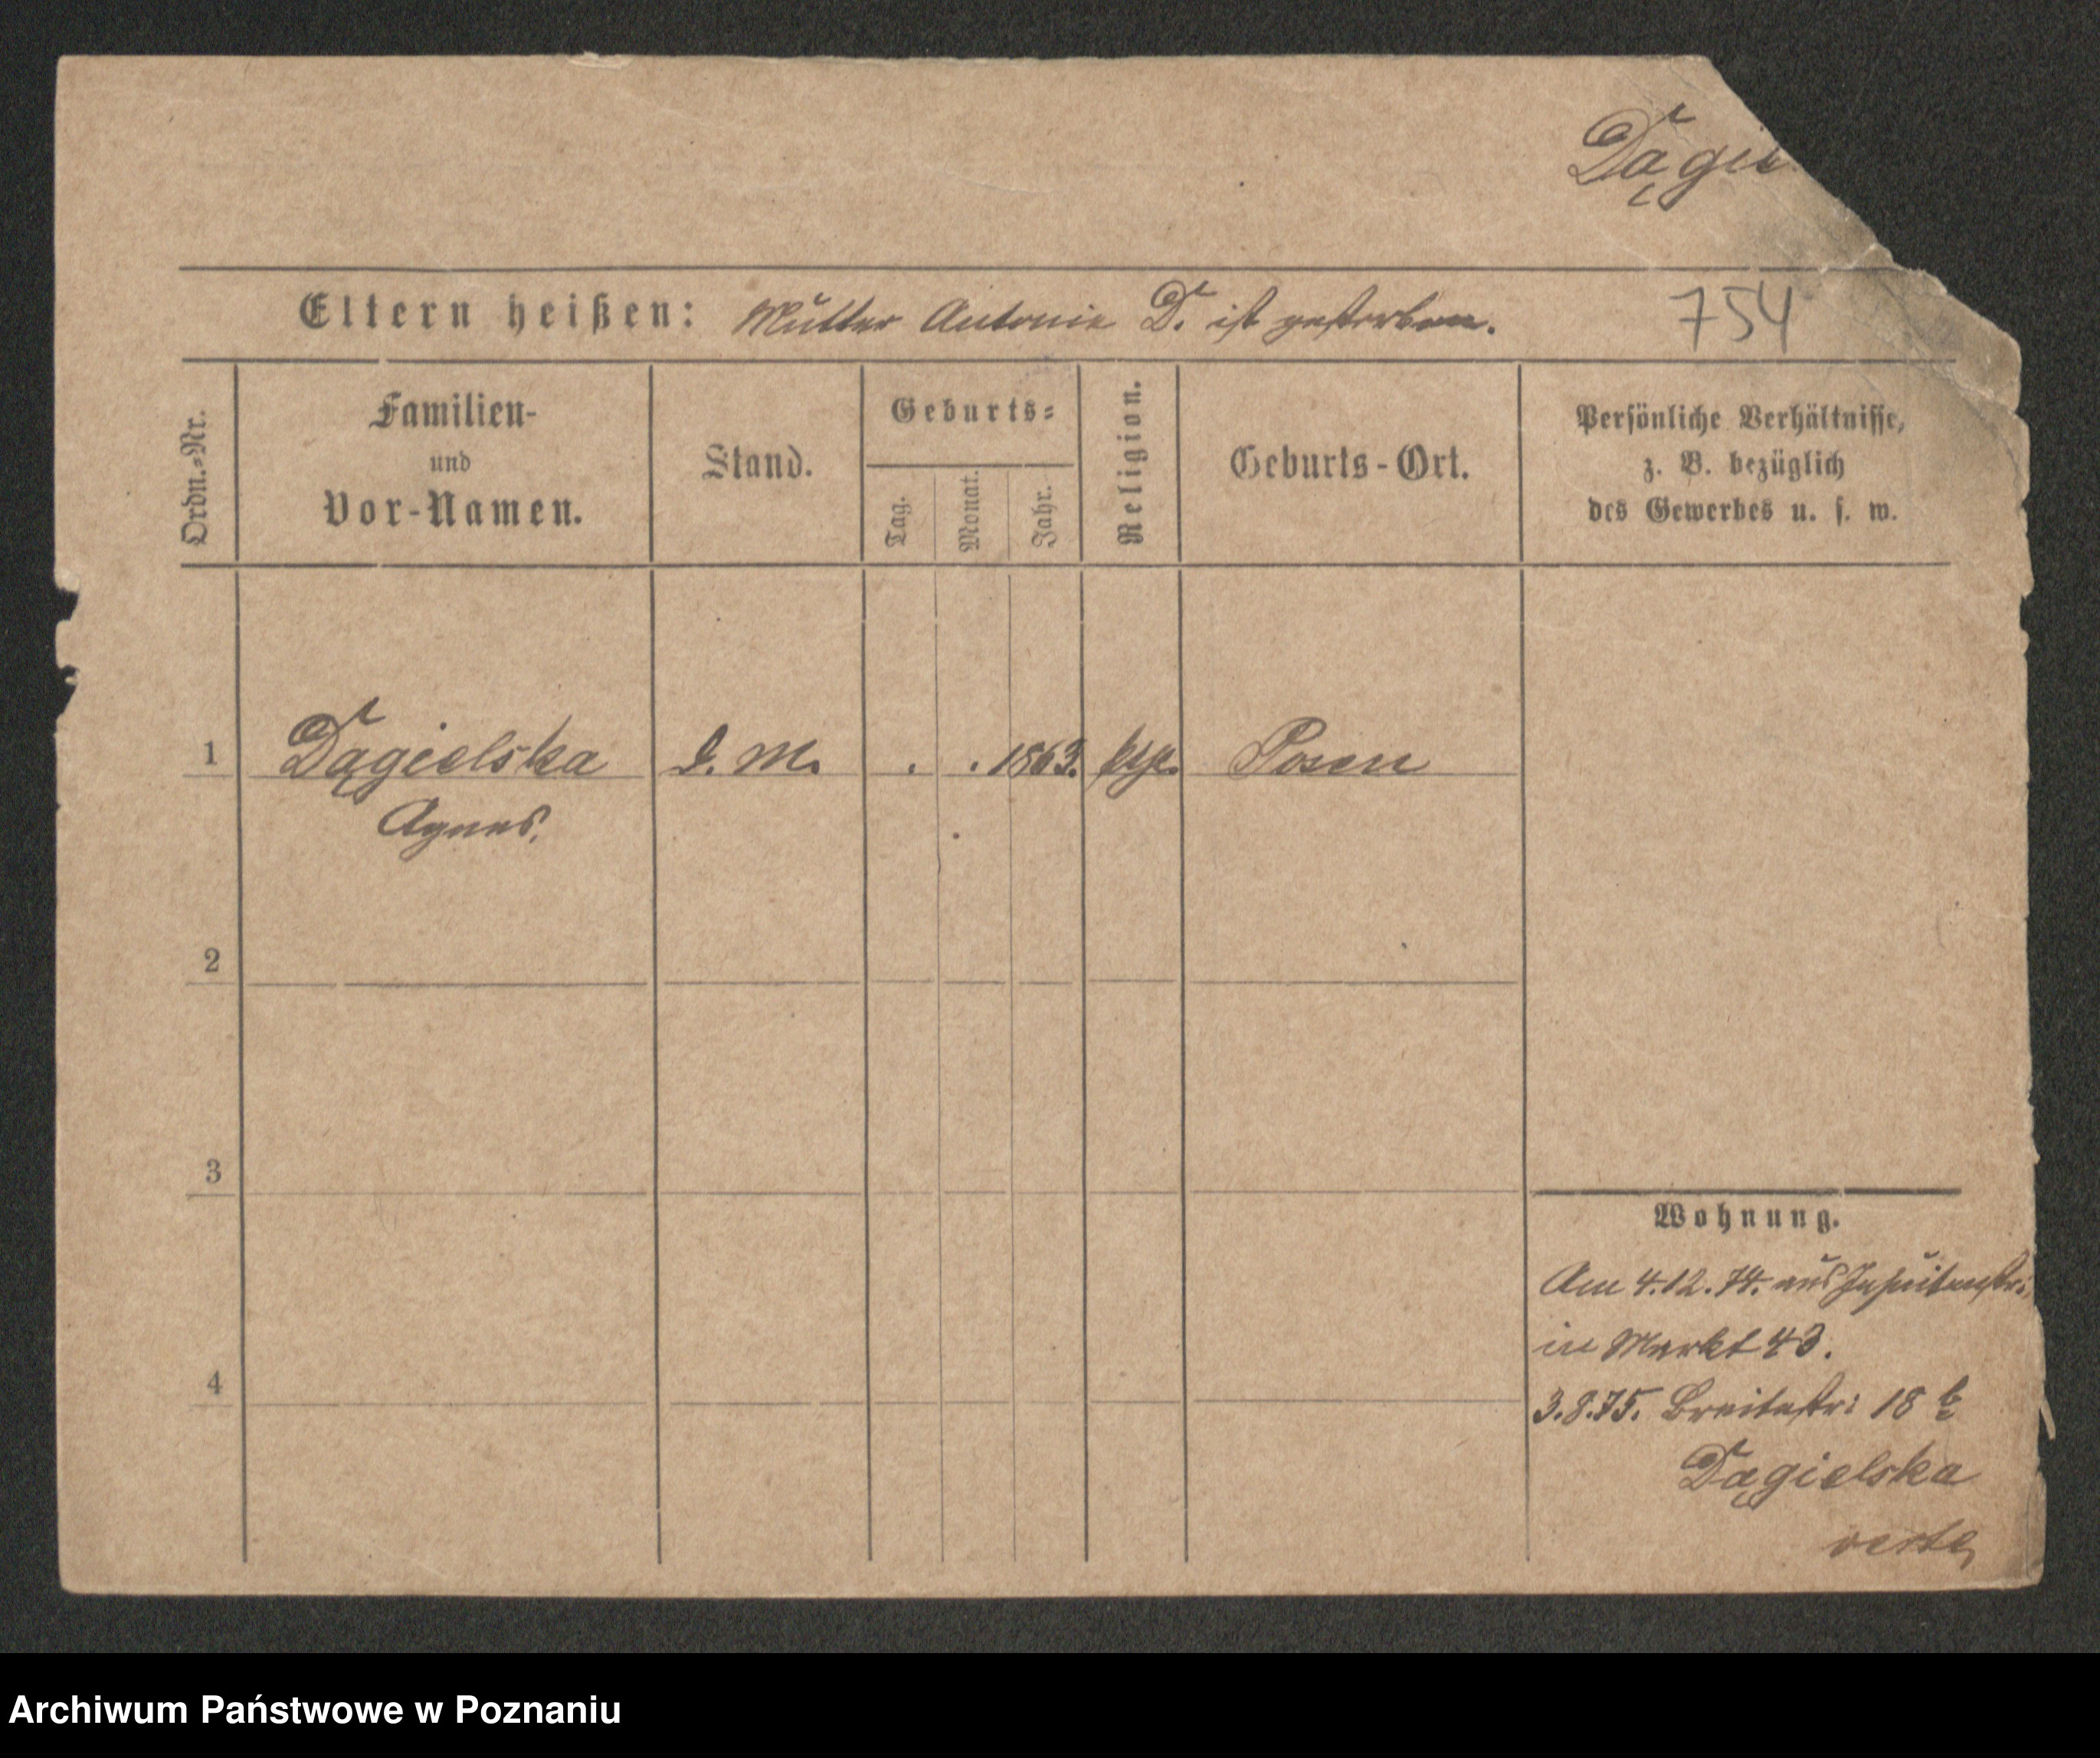 Dągie
Eltern heißen: Mutter Antonie D. ist gestorben.
754
Ordn.-Nr.
Familien-
und
Vor-Namen.
Stand.
Geburts-
Tag.
Monat.
Jahr.
Religion.
Geburts-Ort.
Persönliche Verhältnisse,
z. B. bezüglich
des Gewerbes u. s. w.
1 Dągielska d. M. . . 1863. Posen
Agnes.
2
3
4
Wohnung.
Am 4.12.74. aus Jesuitenstr:
in Markt 43.
3.8.75. Breitestr: 18 b
Dągielska
Archiwum Państwowe w Poznaniu